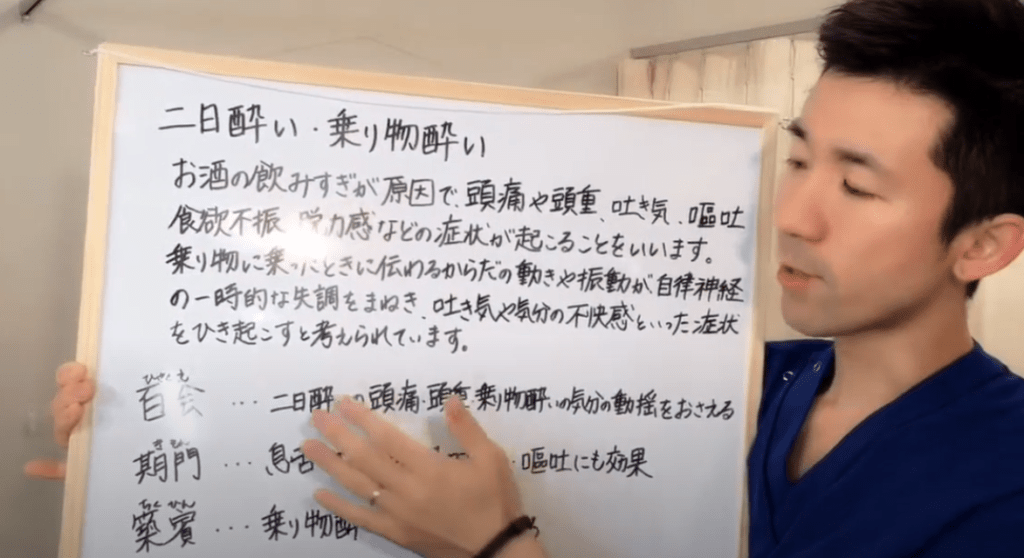 二日酔い・乗り物酔い
お酒の飲みすぎが原因で、頭痛や頭重、吐き気、嘔吐
食欲不振、脱力感などの症状が起こることをいいます。
乗り物に乗ったときに伝わるからだの動きや振動が自律神経
の一時的な失調をまねき、吐き気や気分の不快感といった症状
をひき起こすと考えられています。
ひゃくえ
百会 … 二日酔 の頭痛・頭重、乗り物酔いの気分の動揺をおさえる
きもん
期門 … 嘔吐にも効果
ちくひん
築賓 … 乗り物酔